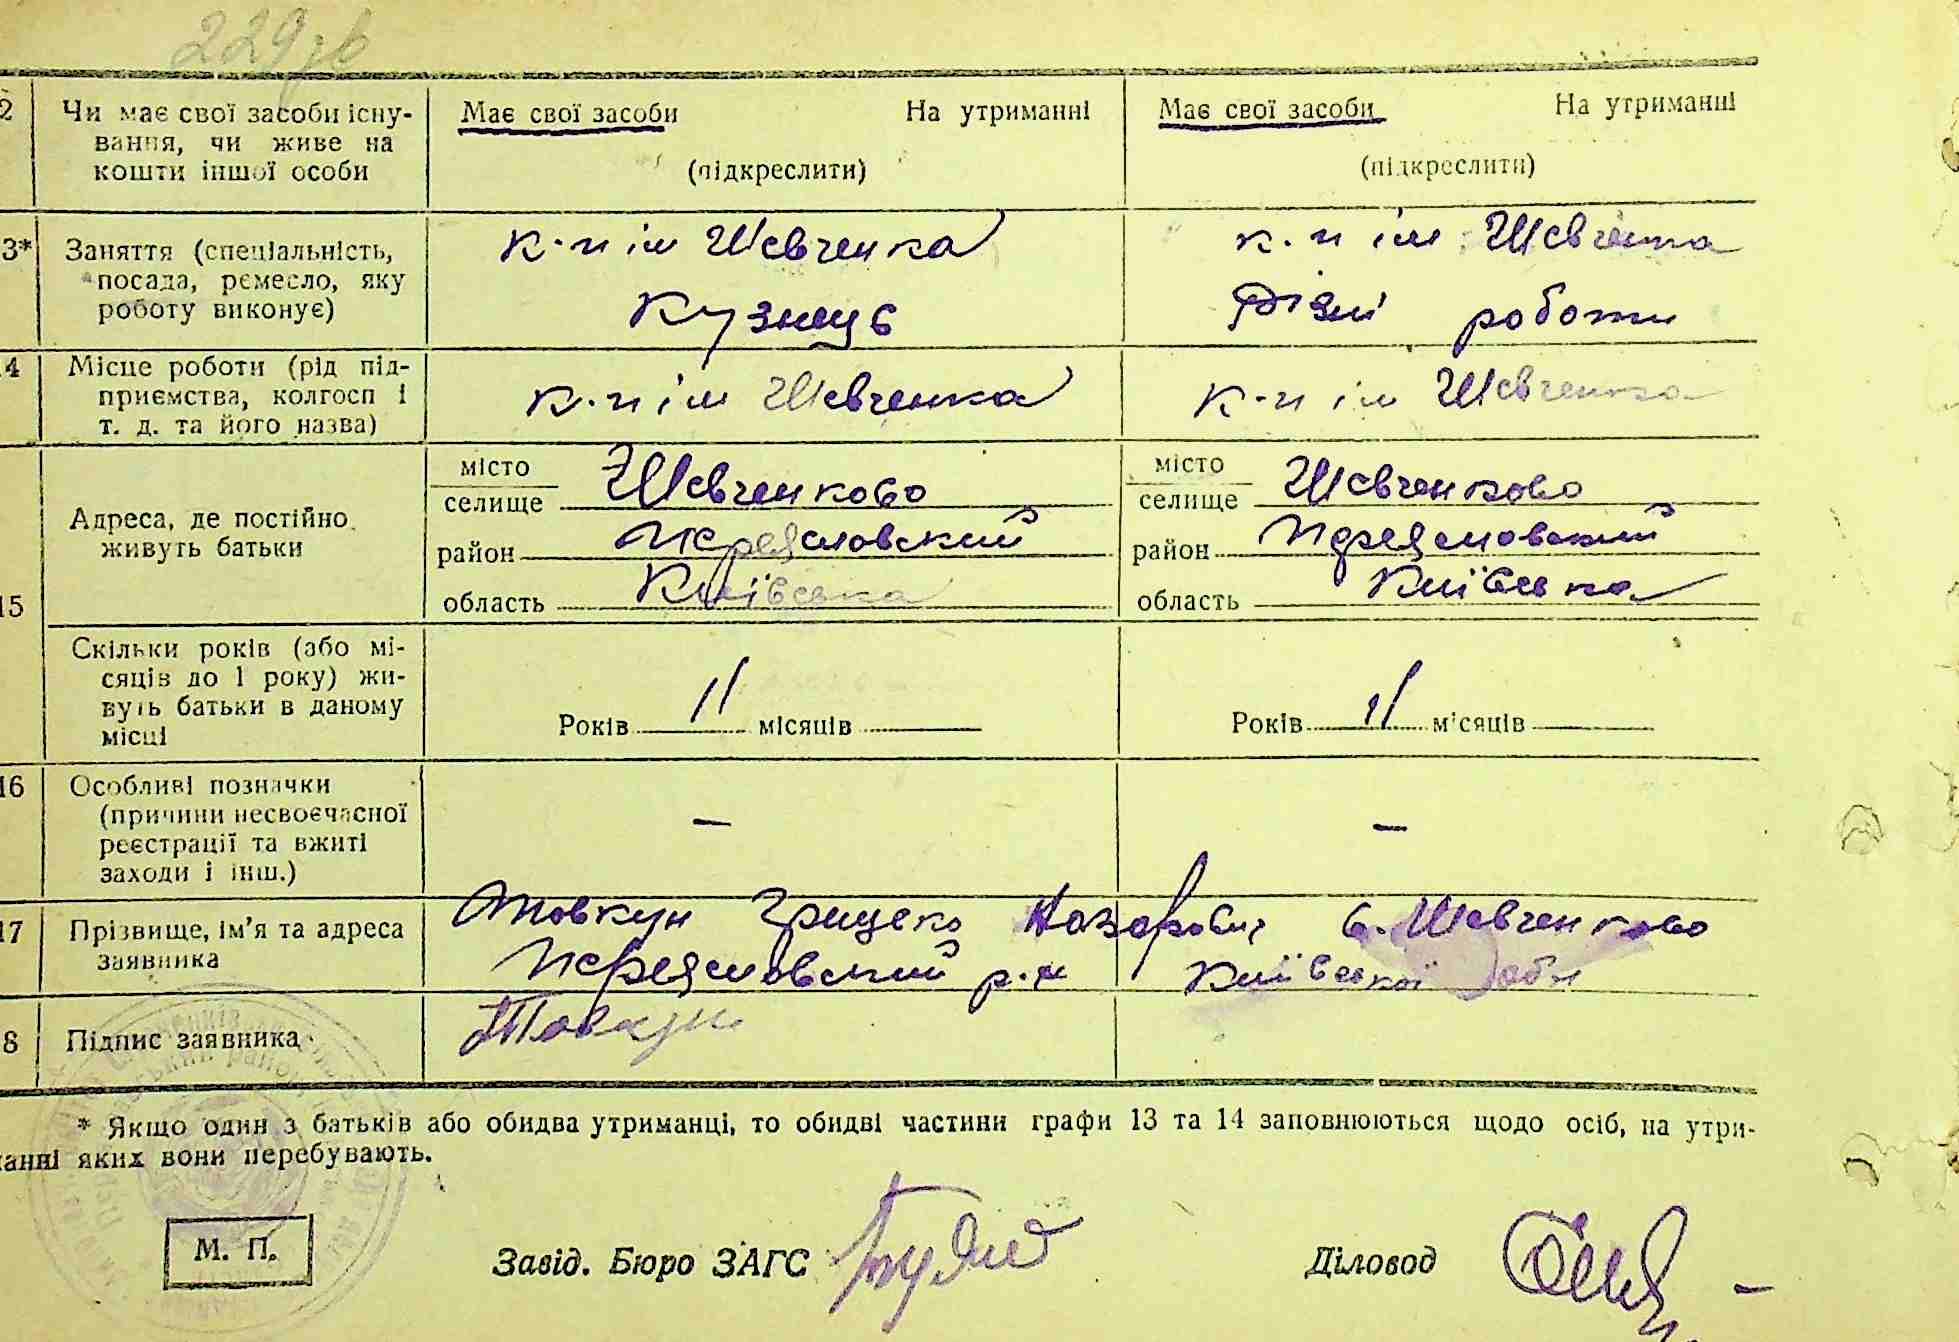 229
2 Чи має свої засоби існу- Має свої засоби На утриманні Має свої засоби На утриманні
вання, чи живе на
кошти іншої особи (підкреслити) (підкреслити)
3* Заняття (спеціальність, к-п ім Шевченка к.п ім Шевченка
посада, ремесло, яку
роботу виконує) Кузнець Різні роботи
4 Місце роботи (рід під- к-п ім Шевченка к-п ім Шевченка
приємства, колгосп і
т. д. та його назва)
місто Шевченково місто Шевченково
селище селище
Адреса, де постійно
живуть батьки район Переясловский район Переясловский
15 область Київська область Київська
Скільки років (або мі-
сяців до 1 року) жи-
вуть батьки в даному
місці Років 11 місяців Років 11 місяців
16 Особливі позначки
(причини несвоєчасної – –
реєстрації та вжиті
заходи і інш.)
17 Прізвище, ім'я та адреса Товкун Грицько Назарович с. Шевченково
заявника Переясловский р-н Київської обл
8 Підпис заявника Товкун
* Якщо один з батьків або обидва утриманці, то обидві частини графи 13 та 14 заповнюються щодо осіб, на утри-
манні яких вони перебувають.
М. П. Завід. Бюро ЗАГС Діловод